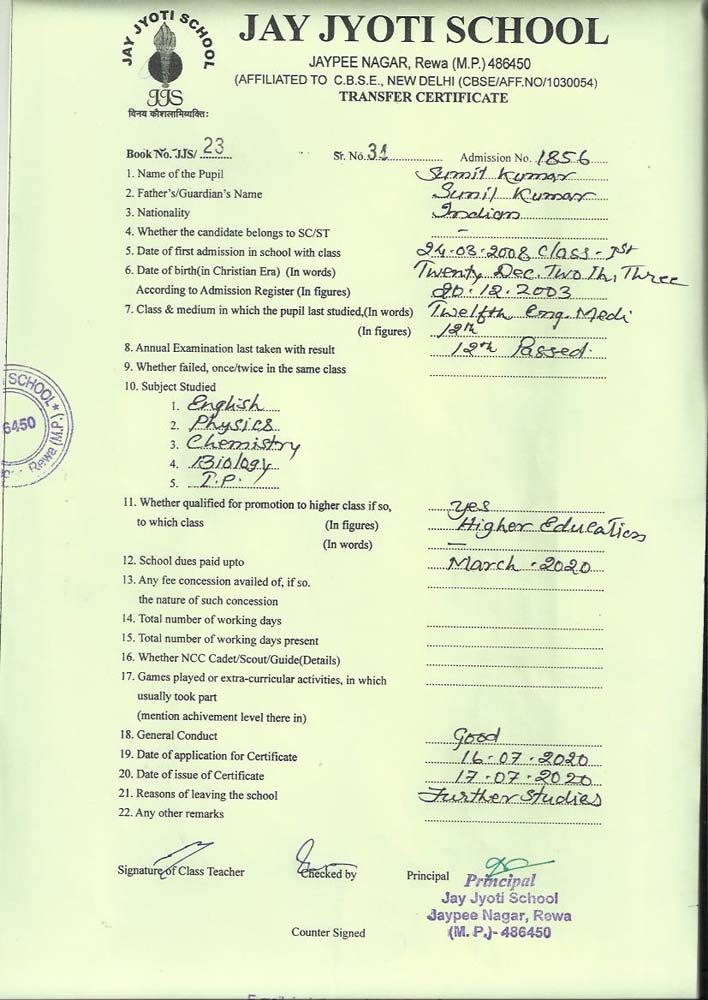 JAY JYOTI SCHOOL
JJS
विनय कौशलाभिव्यक्तिः
JAY JYOTI SCHOOL
JAYPEE NAGAR, Rewa (M.P.) 486450
(AFFILIATED TO C.B.S.E., NEW DELHI (CBSE/AFF.NO/1030054)
TRANSFER CERTIFICATE
Book No. JJS/ 23 Sr. No. 31 Admission No. 1856
1. Name of the Pupil Sumit Kumar
2. Father's/Guardian's Name Sunil Kumar
3. Nationality Indian
4. Whether the candidate belongs to SC/ST –
5. Date of first admission in school with class 24-03-2008 Class - Ist
6. Date of birth(in Christian Era) (In words) Twenty Dec. Two Th. Three
According to Admission Register (In figures) 20.12.2003
7. Class & medium in which the pupil last studied,(In words) Twelfth Eng. Medi
(In figures) 12th
8. Annual Examination last taken with result 12th Passed.
9. Whether failed, once/twice in the same class
10. Subject Studied
1. English
2. Physics
3. Chemistry
4. Biology
5. I.P.
SCHOOL
6450
Rewa (M.P.)
11. Whether qualified for promotion to higher class if so, yes
to which class (In figures) Higher Education
(In words) –
12. School dues paid upto March - 2020
13. Any fee concession availed of, if so.
the nature of such concession
14. Total number of working days
15. Total number of working days present
16. Whether NCC Cadet/Scout/Guide(Details)
17. Games played or extra-curricular activities, in which
usually took part
(mention achivement level there in)
18. General Conduct Good
19. Date of application for Certificate 16-07-2020
20. Date of issue of Certificate 17-07-2020
21. Reasons of leaving the school Further Studies
22. Any other remarks
Signature of Class Teacher Checked by Principal
Principal
Jay Jyoti School
Jaypee Nagar, Rewa
(M. P.)- 486450
Counter Signed